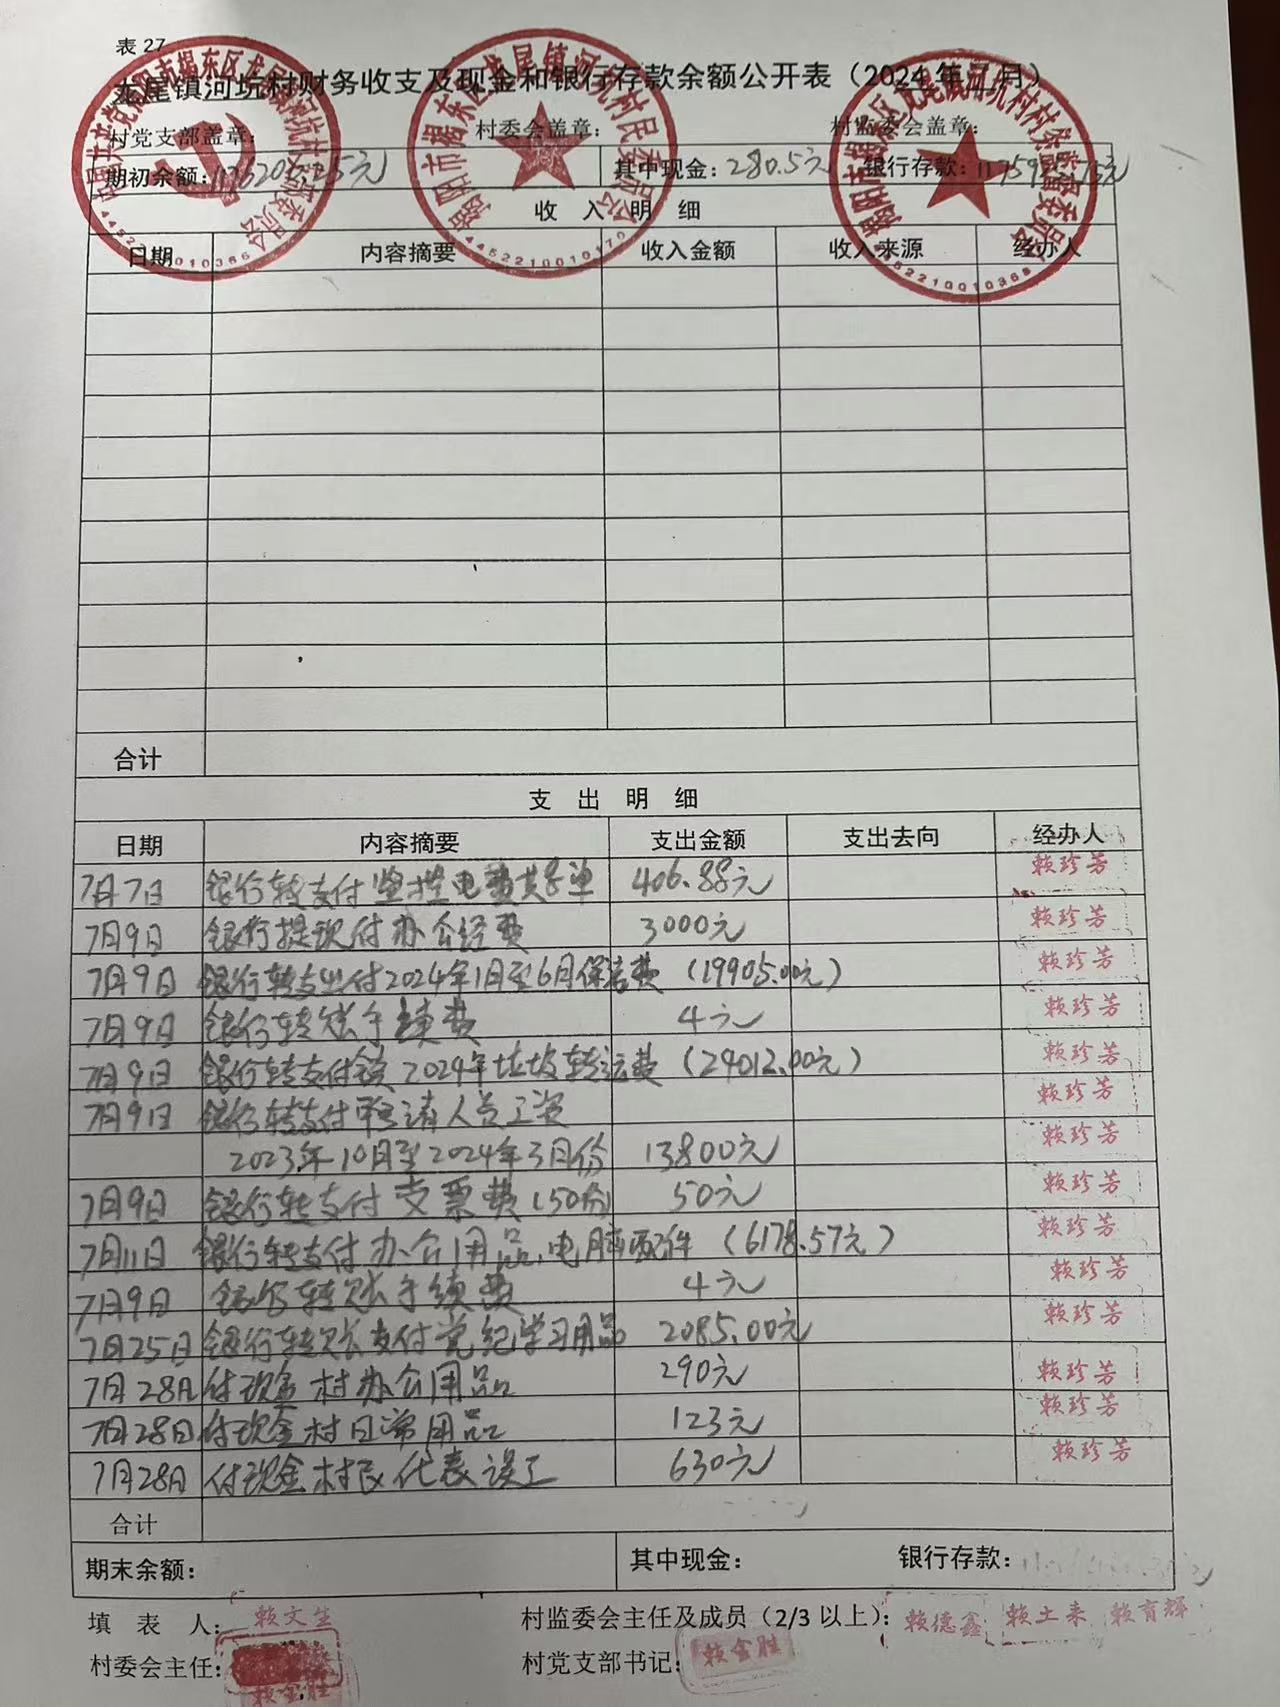 表 27
龙尾镇河坑村财务收支及现金和银行存款余额公开表（2024 年 月）
村党支部盖章： 村委会盖章： 村监委会盖章：
期初余额： 其中现金：280.5元 银行存款：
收 入 明 细
日期 内容摘要 收入金额 收入来源 经办人
合计
支 出 明 细
日期 内容摘要 支出金额 支出去向 经办人
7月7日 银行转支付监控电费共8单 406.88元 赖珍芳
7月9日 银行提现付办公经费 3000元 赖珍芳
7月9日 银行转支出付2024年1月至6月保洁费（19905.00元） 赖珍芳
7月9日 银行转账手续费 4元 赖珍芳
7月9日 银行转支付镇2024年垃圾转运费（24012.00元） 赖珍芳
7月9日 银行转支付 请人员工资 赖珍芳
2023年10月至2024年3月份 13800元 赖珍芳
7月9日 银行转支付支票费（50份） 50元 赖珍芳
7月11日 银行转支付办公用品、电脑配件（6178.57元） 赖珍芳
7月9日 银行转账手续费 4元 赖珍芳
7月25日 银行转账支付党纪学习用品 2085.00元 赖珍芳
7月28日 付现金村办公用品 290元 赖珍芳
7月28日 付现金村日常用品 123元 赖珍芳
7月28日 付现金村民代表误工 630元 赖珍芳
合计
期末余额： 其中现金： 银行存款：
填 表 人： 赖文生 村监委会主任及成员（2/3 以上）： 赖德鑫 赖土来 赖育辉
村委会主任： 赖金胜 村党支部书记： 赖金胜